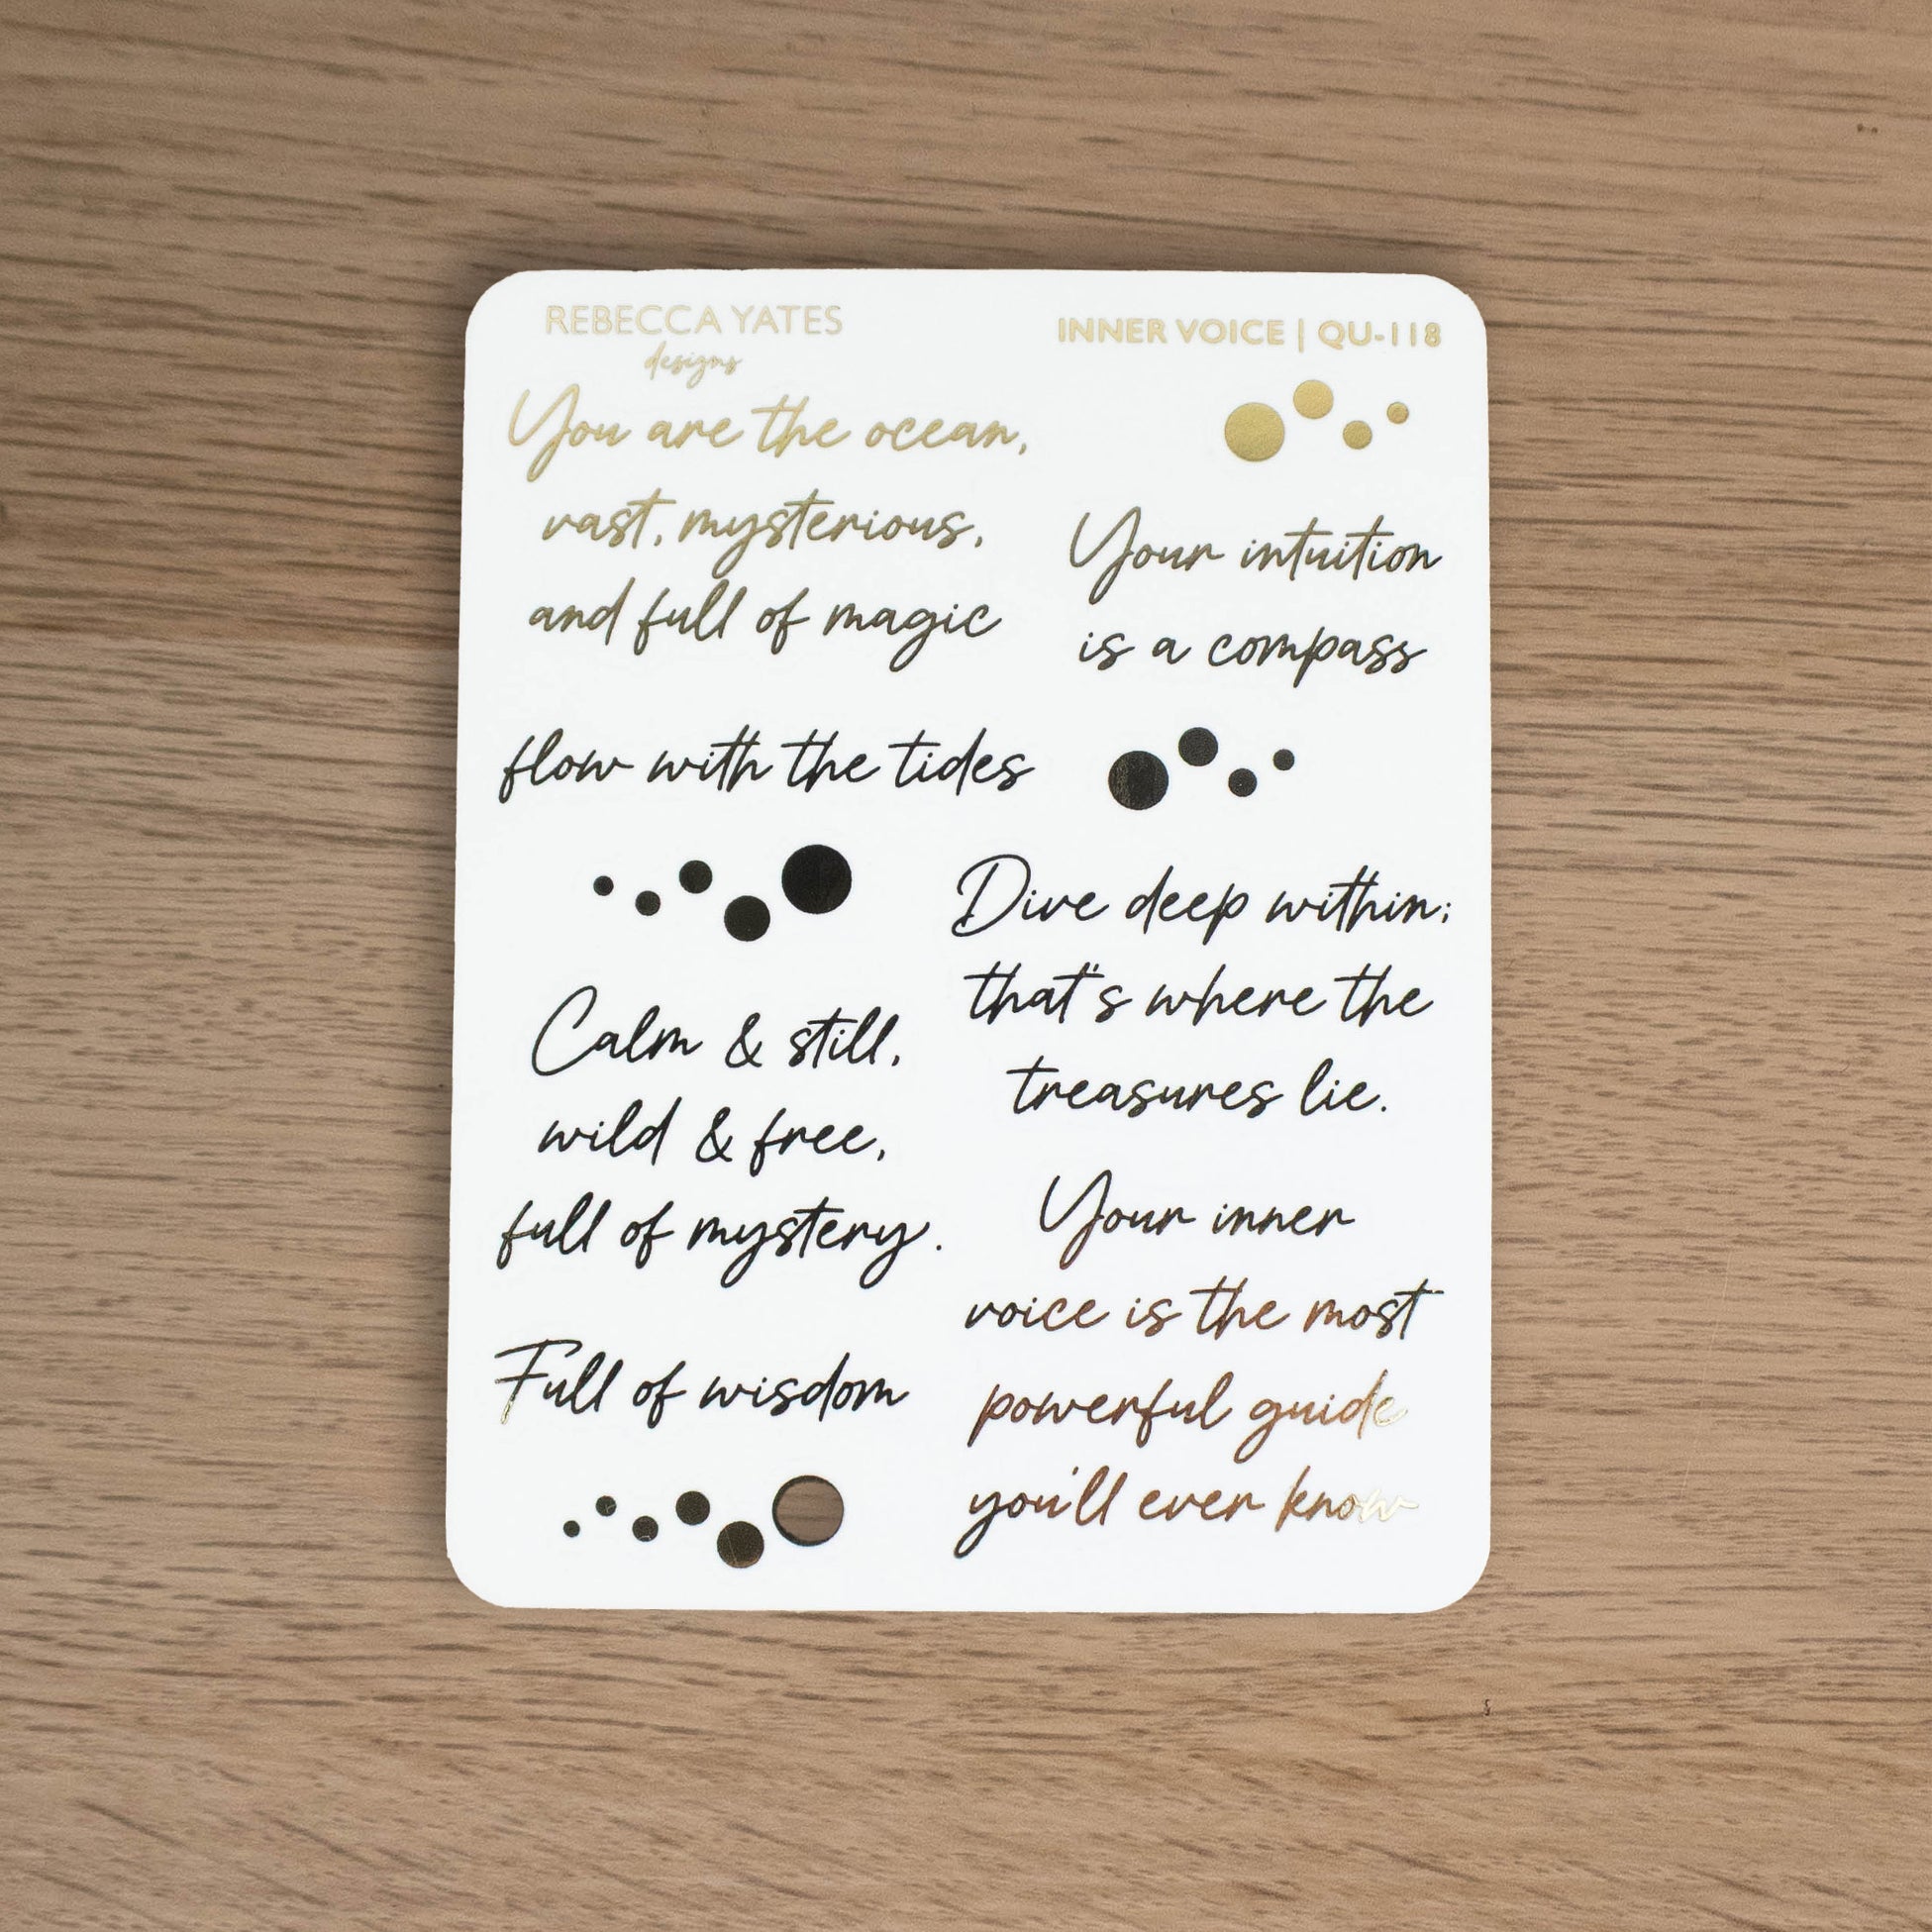 REBECCA YATES
designs
INNER VOICE | QU-118
You are the ocean,
vast, mysterious,
and full of magic
flow with the tides
Calm & still,
wild & free,
full of mystery.
Full of wisdom
Your intuition
is a compass
Dive deep within;
that's where the
treasures lie.
Your inner
voice is the most
powerful guide
you'll ever know